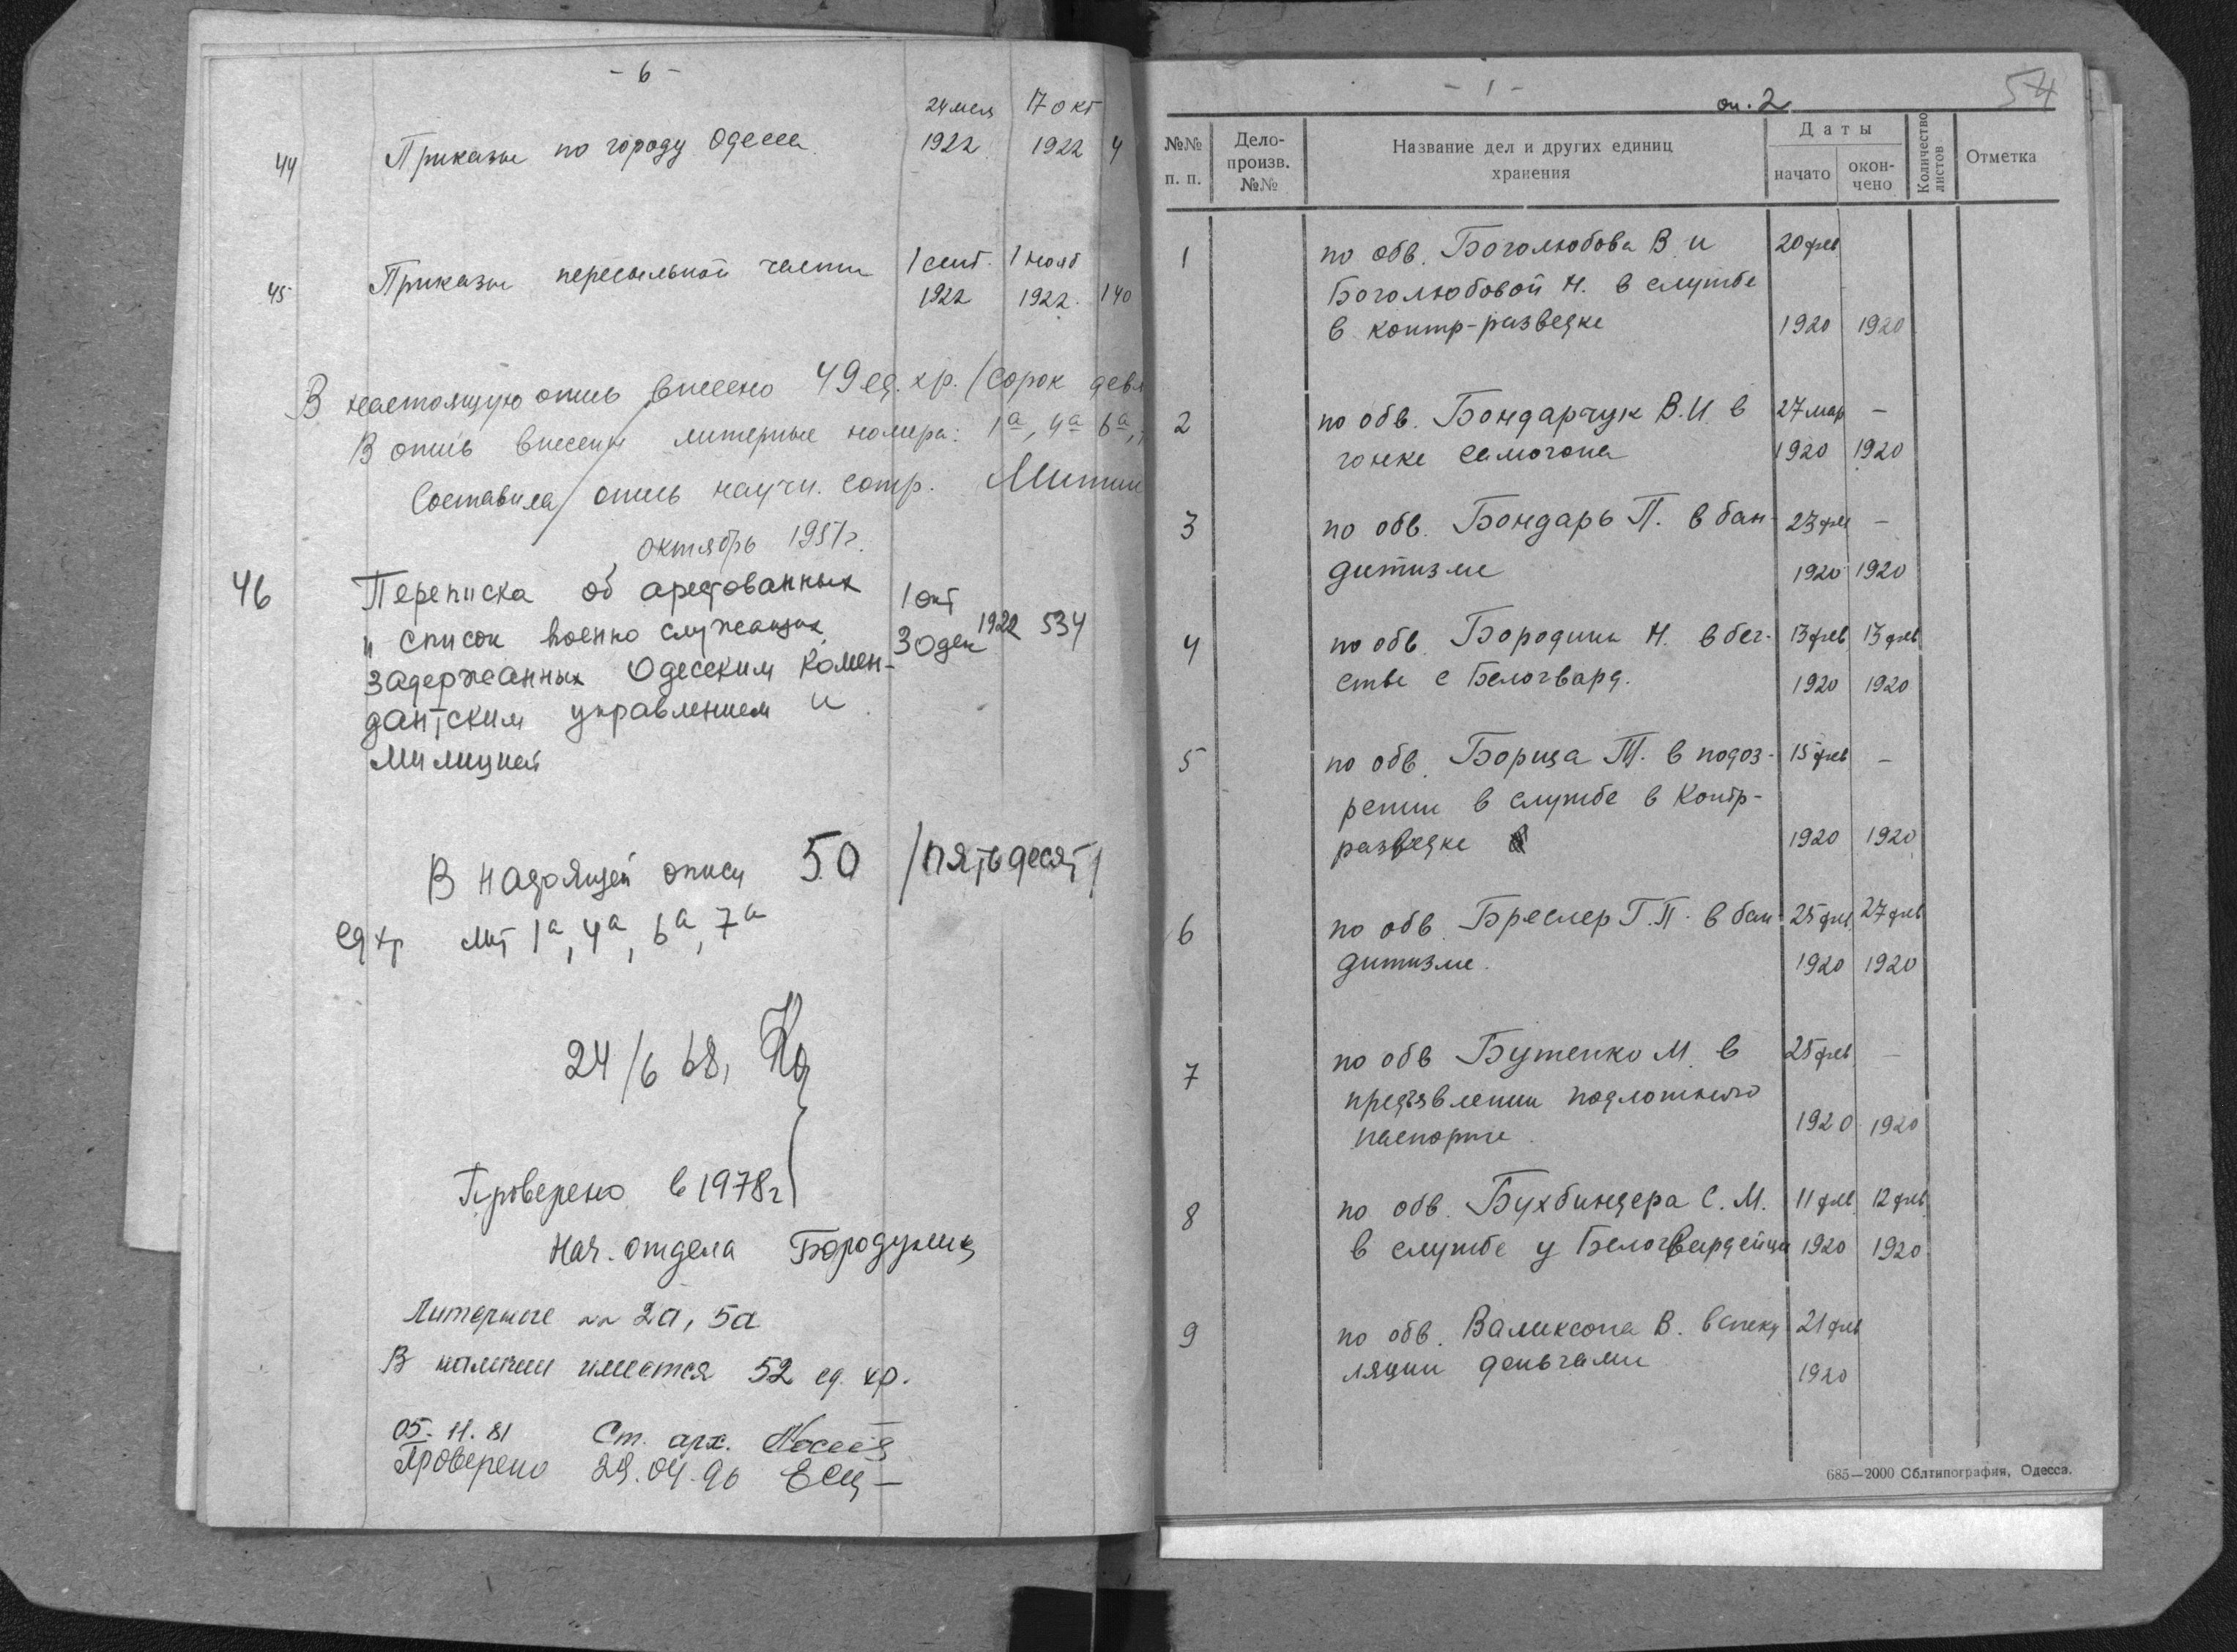 - 6 -
24 мая 17 окт
44 Приказы по городу Одессе 1922 1922 4
45 Приказы пересыльной части 1 сент. 1 нояб
1922 1922. 140
В настоящую опись внесено 49 ед. хр. /сорок девя
В опись внесены литерные номера: 1а, 4а 6а,
Составила опись научн. сотр.
октябрь 1951 г.
46 Переписка об арестованных 1 окт
и список военнослужащих 30 дек 1922 534
задержанных Одесским комен-
дантским управлением и
милицией
В настоящей описи 50 /пятьдесят/
ед хр лит 1а, 4а, 6а, 7а
24/6 68,
Проверено в 1978 г
Нач. отдела
Литерные 2а, 5а
В наличии имеется 52 ед. хр.
05. 11. 81 Ст. арх.
Проверено 29.04.96
- 1 -
оп. 2
54
№№ п. п.
Дело-
произв.
№№
Название дел и других единиц
хранения
Даты
начато
окон-
чено
Количество
листов
Отметка
1 по обв. Боголюбова В. и 20 фев
Боголюбовой Н. в службе
в контр-разведке 1920 1920
2 по обв. Бондарчук В.И. в 27 мар –
гонке самогона 1920 1920
3 по обв. Бондарь П. в бан- 23 фев –
дитизме 1920 1920
4 по обв. Бородина Н. в бег- 13 фев 13 фев
стве с Белогвард. 1920 1920
5 по обв. Борща Т. в подоз- 15 фев –
рении в службе в Контр-
разведке 1920 1920
6 по обв. Бреслер Г.П. в бан- 25 фев 27 фев
дитизме. 1920 1920
7 по обв Бутенко М. в 25 фев –
предъявлении подложного
паспорта. 1920 1920
8 по обв. Бухбиндера С. М. 11 фев 12 фев
в службе у Белогвардейцев 1920 1920
9 по обв. Валиксона В. в спеку 21 фев
ляции деньгами 1920
685—2000 Облтипография, Одесса.